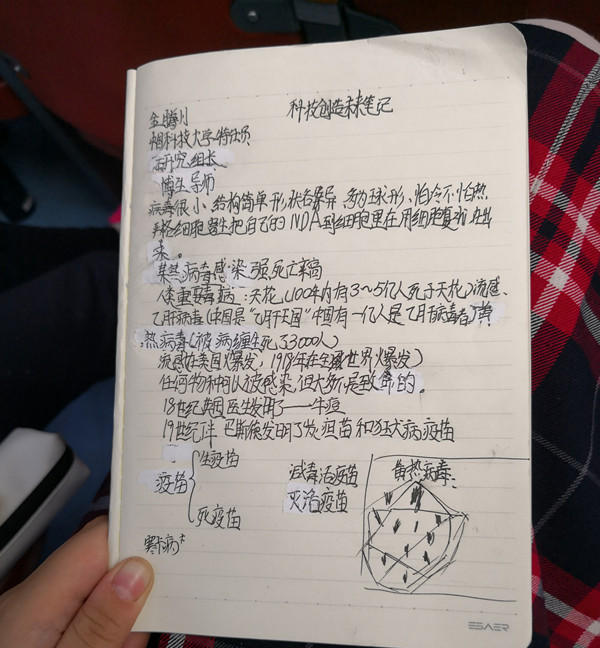 科技创造未来笔记
金腾川
中国科技大学特任
研究组长
博生导师
病毒很小、结构简单形状各异 多为球形、怕冷不怕热
严格细胞寄生把自己的NDA到细胞里在用细胞复制在出
来。
某些病毒感染强死亡率高
人类重要毒病:天花(100年内有3~5亿人死于天花)流感、
乙肝病毒(中国是“乙肝王国”中国有一亿人是乙肝病毒者)黄
热病毒(被病缠生死了33000人)
流感在美国爆发,1918年在全世界爆发)
任何物种可以被感染,但大多是致命的。
18世纪英国医生发明了——牛痘
19世纪 巴斯德发明了炭疽苗和狂犬病疫苗
疫苗
生疫苗
死疫苗
减毒活疫苗
灭活疫苗
黄热病毒:
ESAER